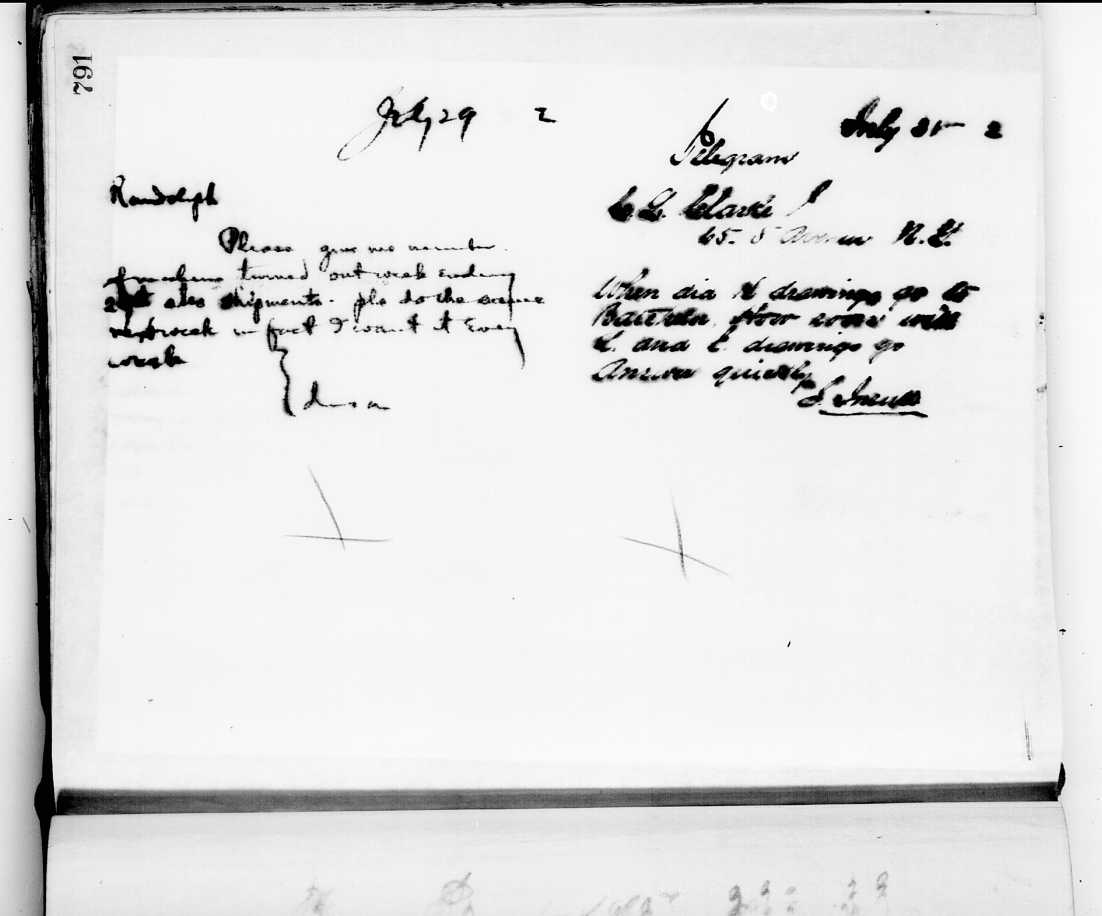 791
July 29 2
Randolph
Please give me number
turned out week ending
also shipments - pls do the same
next week in fact I want it Every
week
Edison
July 31st 2
Telegram
C. L. Clarke
65. 5 Avenue N. Y.
When did H drawings go to
How soon will
L. and C. drawings go
Answer quickly
S. Insull